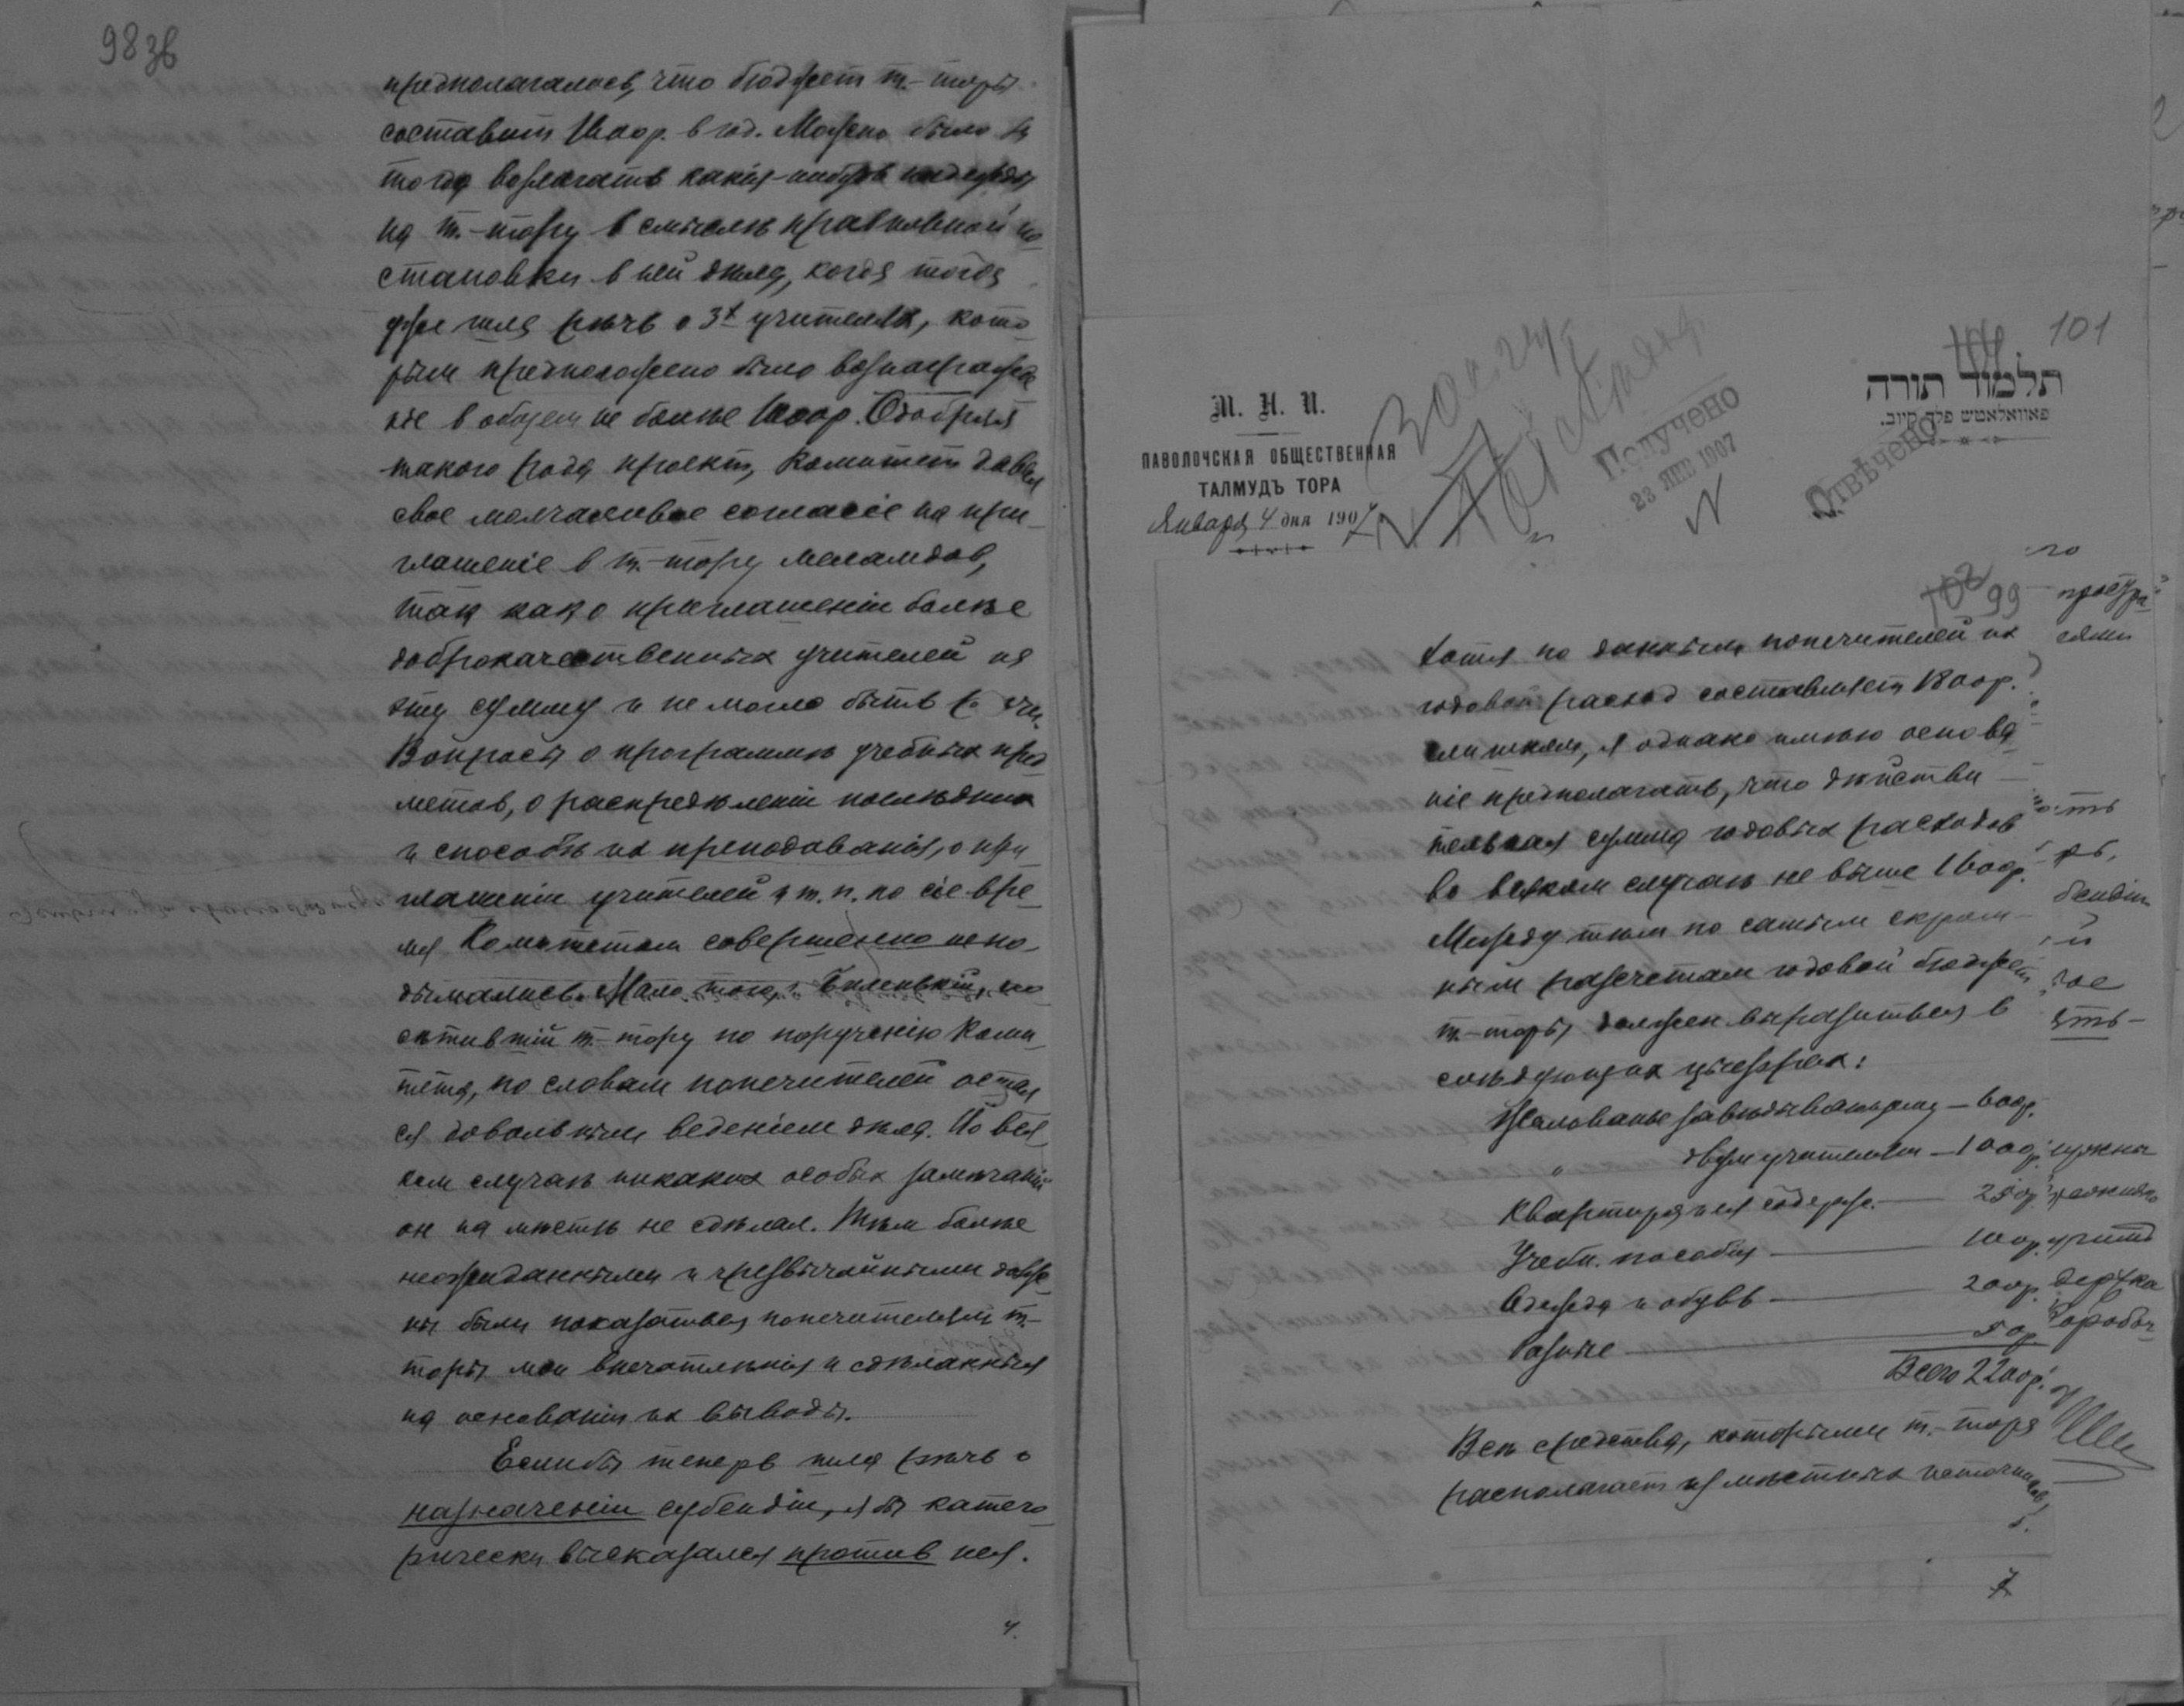 98 зв
предполагалось, что бюджет т.-торы
составит 1600р. в год. Можно было ли
тогда возлагать какія-нибудь надежды
на т.-тору в смысле правильной по-
становки в ней дела, когда тогда
уже шла речь о 3х учителях, кото-
рым предположено было вознагражде
ніе в общем не более 1000р. Одобряя
такого рода проект, Комитет давал
свое молчаливое согласіе на при-
глашеніе в т.-тору меламдов,
так как о приглашеніи более
доброкачественных учителей на
эту сумму и не могло быть речи.
Вопросы о программе учебных пред-
метов, о распределеніи последних
и способе их преподаванія, о при-
глашеніи учителей и т. п. по сіе вре-
мя Комитетом совершенно не по-
дымались. Мало того, г. Биленькій, по-
сетившій т.-тору по порученію Коми-
тета, по словам попечителей остал
ся довольным веденіем дела. Во вся-
ком случае никаких особых замечаній
он на месте не сделал. Тем более
неожиданными и чрезвычайными долж-
ны были показаться попечителям т.-
торы мои впечатленія и сделанные
на основаніи их выводы.
Если бы теперь шла речь о
назначеніи субсидіи, я бы катего-
рически высказался против нея.
4.
101
תלמוד תורה
פאוואלאטש פלך קיוב.
М. Н. П.
ПАВОЛОЧСКАЯ ОБЩЕСТВЕННАЯ
ТАЛМУДЪ ТОРА
Января 4 дня 1907
Получено
23 ЯНВ 1907
Отвѣчено
N
102 99
хотя по данным попечителей их
годовой расход составляет 1800р.
слишком, я однако имею основа-
ніе предполагать, что действи-
тельная сумма годовых расходов
во всяком случае не выше 1600р.
Между тем по самым скром-
ным расчетам годовой бюджет
т.-торы должен выразиться в
следующих цыфрах:
Жалованье заведывающему — 600р.
" двум учителям — 1000р.
Квартира и ея содерж. — 250р.
Учебн. пособія — 100р.
Одежда и обувь — 200р.
Разные — 50р
Всего 2200р.
Все средства, которыми т.-тора
располагает из местных источников,
5.